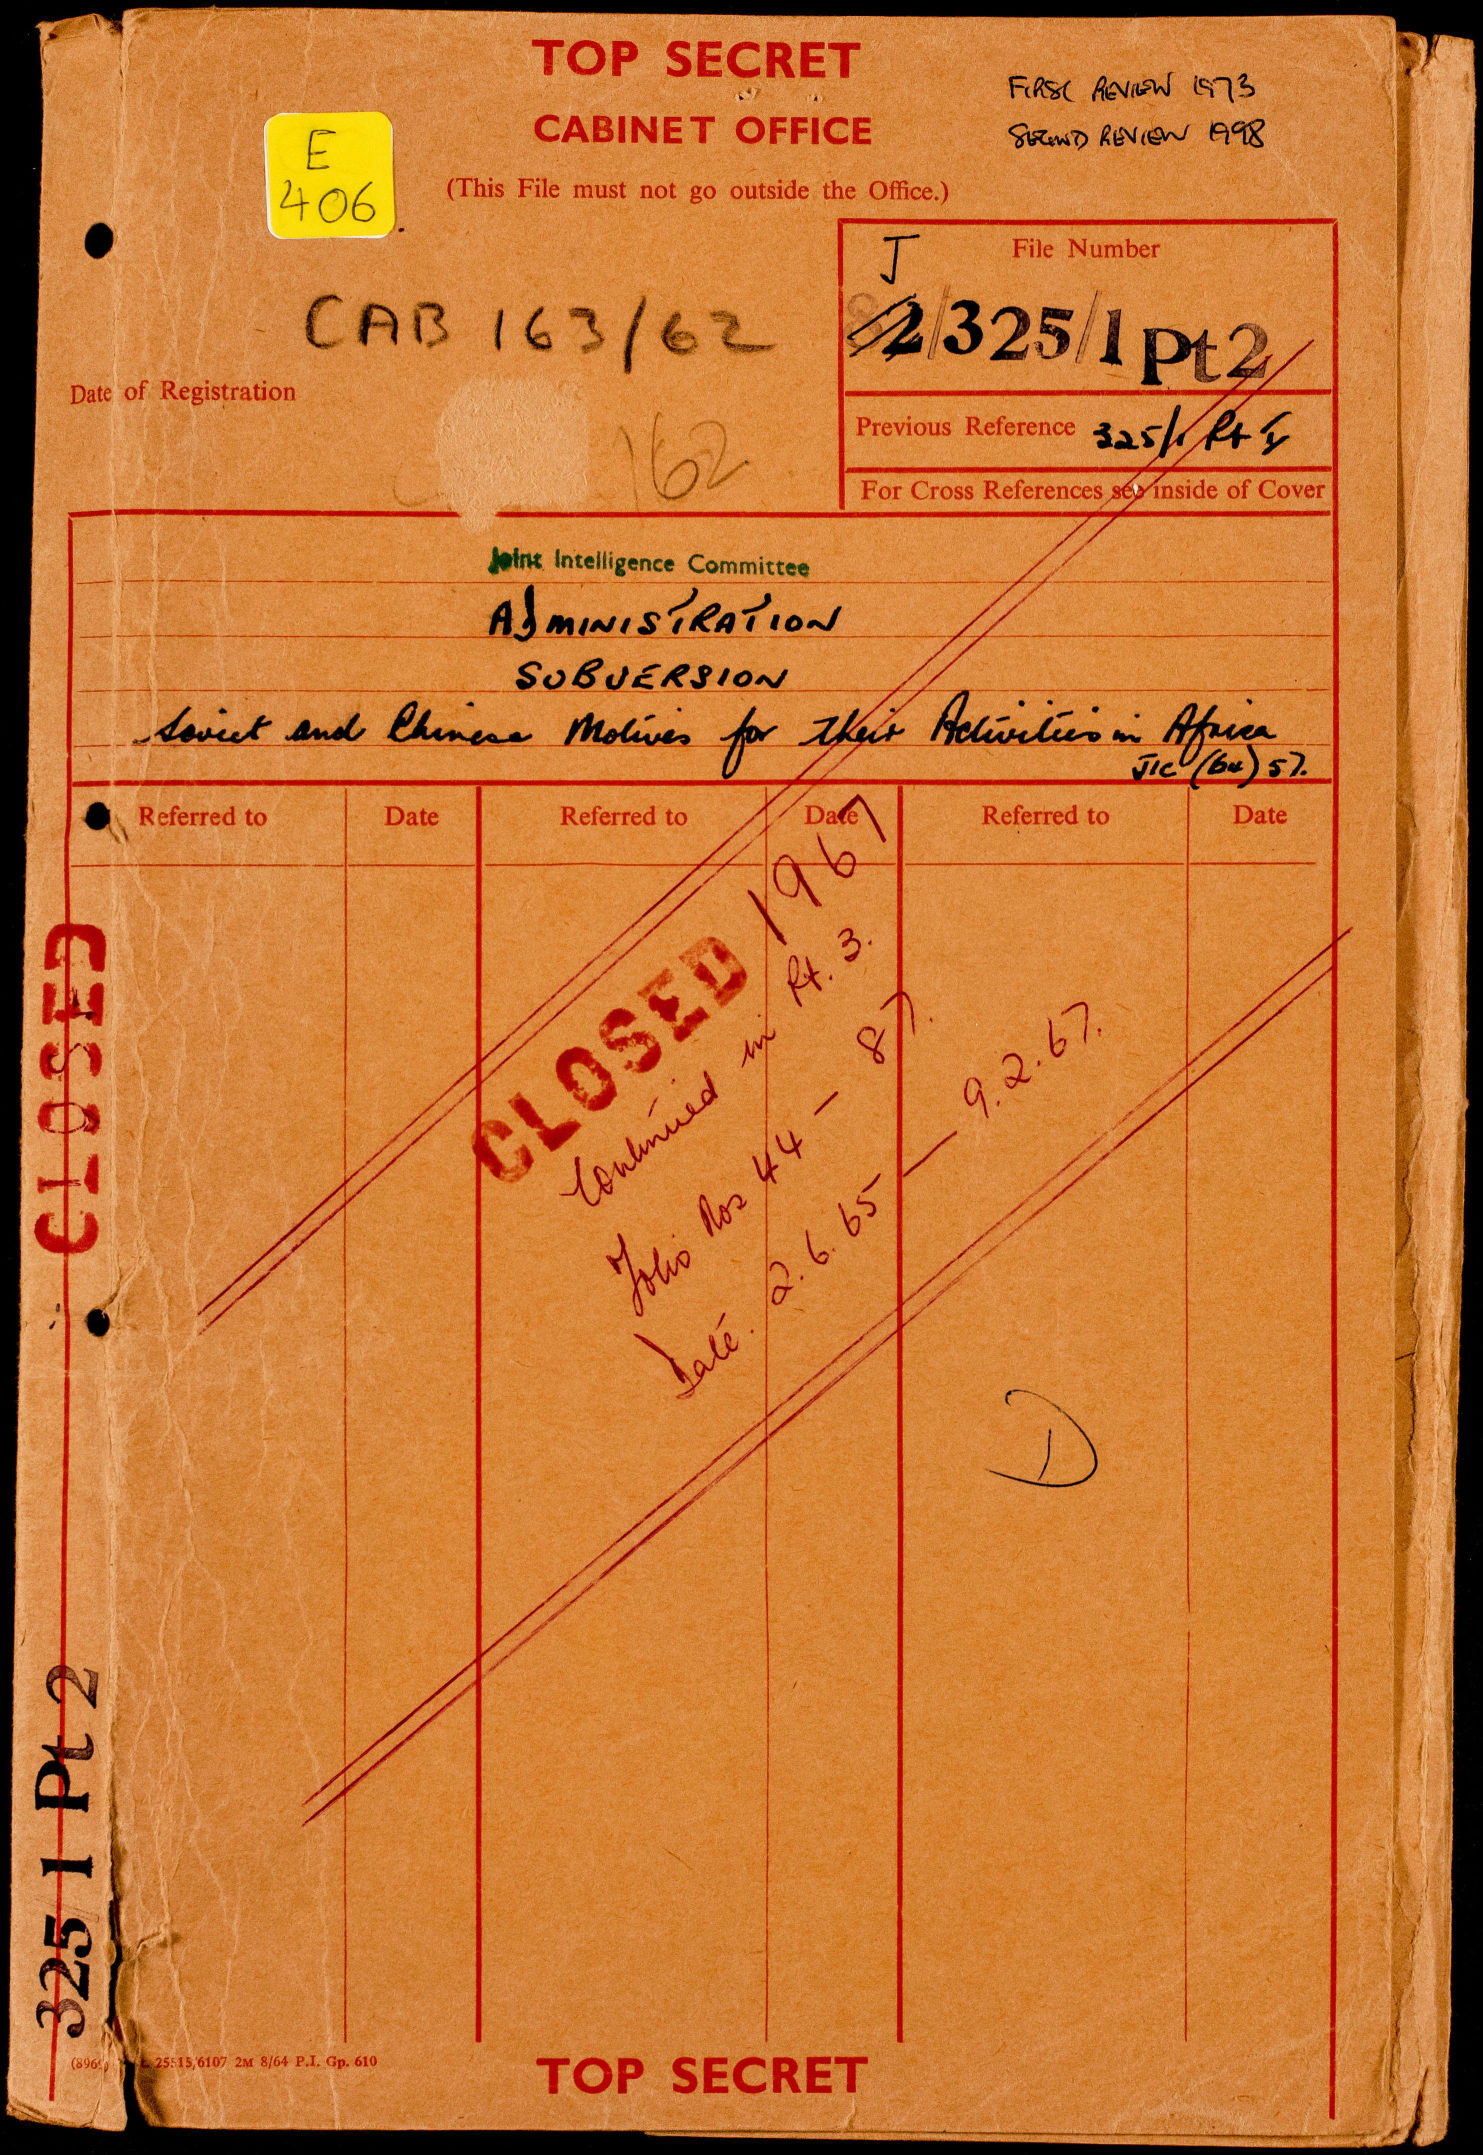 TOP SECRET
CABINET OFFICE
(This File must not go outside the Office.)
FIRST REVIEW 1973
SECOND REVIEW 1998
E
406
CAB 163/62
Date of Registration
162
J
File Number
2/325/1 Pt 2
Previous Reference 325/1 Pt I
For Cross References see inside of Cover
Joint Intelligence Committee
ADMINISTRATION
SUBVERSION
Soviet and Chinese Motives for their Activities in Africa
JIC (64) 57.
Referred to Date Referred to Date Referred to Date
CLOSED 1967
Continued in Pt. 3.
Folio Nos 44 - 87.
Date. 2.6.65 - 9.2.67.
D
CLOSED
325/1 Pt 2
25515/6107 2M 8/64 P.I. Gp. 610
TOP SECRET